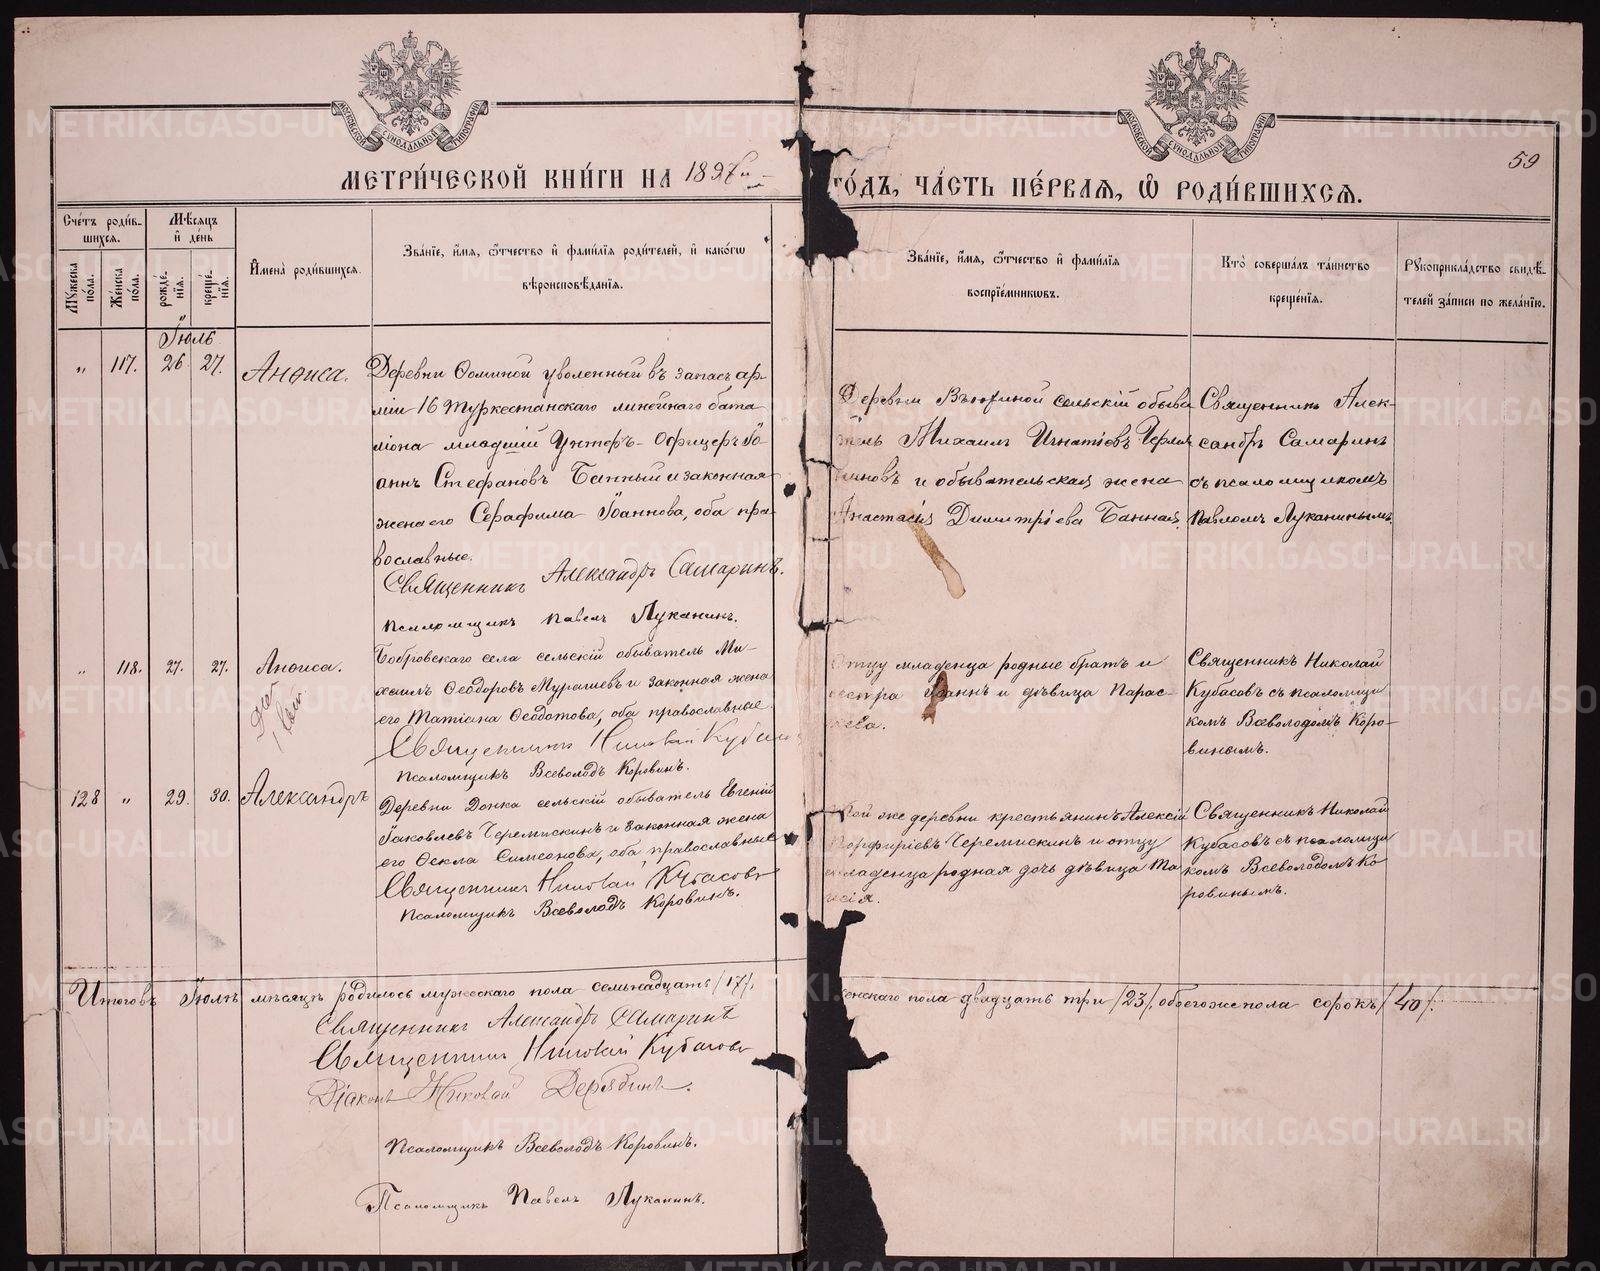 МОСКОВСКОЙ СѴНОДАЛЬНОЙ ТИПОГРАФІИ
МОСКОВСКОЙ СѴНОДАЛЬНОЙ ТИПОГРАФІИ
59
МЕТРИ́ЧЕСКОЙ КНИ́ГИ НА 1897й
ГО́ДЪ, ЧА́СТЬ ПЕ́РВАѦ, Ѡ҆ РОДИ́ВШИХСѦ.
Сче́тъ роди́вшихсѧ.
Мꙋ́жеска по́ла.
Же́нска по́ла.
Мѣ́сѧцъ и҆ де́нь
рожде́нїѧ.
креще́нїѧ.
И҆мена̀ роди́вшихсѧ.
Зва́нїе, и҆́мѧ, ѻ҆́тчество и҆ фами́лїѧ роди́телей, и҆ како́гѡ
вѣроисповѣ́данїѧ.
Зва́нїе, и҆́мѧ, ѻ҆́тчество и҆ фами́лїѧ
воспрїе́мникѡвъ.
Кто̀ соверша́лъ та́инство
креще́нїѧ.
Рꙋкоприкла́дство свидѣ́-
телей за́писи по жела́нїю.
Іюль
" 117. 26. 27. Анѳиса.
Деревни Ѳоминой уволенный въ запасъ ар-
міи 16 Туркестанскаго линейнаго бата
ліона младшій Унтеръ-Офицеръ Іо-
аннъ Стефановъ Банный и законная
жена его Серафима Іоаннова, оба пра-
вославные.
Священникъ Александръ Самаринъ.
Псаломщикъ Павелъ Луканинъ.
Деревни сельскій обыва
тель Михаилъ Игнатіевъ
и обывательская жена
Анастасія Димитріева Банная.
Священникъ Алек-
сандръ Самаринъ
съ псаломщикомъ
Павломъ Луканинымъ.
" 118. 27. 27. Анѳиса.
Бобровскаго села сельскій обыватель Ми-
хаилъ Ѳеодоровъ Мурашевъ и законная жена
его Татіана Ѳеодотова, оба православные
Священникъ Николай Кубасовъ
Псаломщикъ Всеволодъ Коровинъ.
Отцу младенца родные братъ и
сестра Іоаннъ и дѣвица Парас-
кева.
Священникъ Николай
Кубасовъ съ псаломщи
комъ Всеволодомъ Коро-
винымъ.
128 " 29. 30. Александръ
Деревни Донка сельскій обыватель Евгеній
Іаковлевъ Черемискинъ и законная жена
его Ѳекла Симеонова, оба православные
Священникъ Николай Кубасовъ
Псаломщикъ Всеволодъ Коровинъ.
Той же деревни крестьянинъ Алексій
Порфиріевъ Черемискинъ и отцу
младенца родная дочь дѣвица Та
исія.
Священникъ Николай
Кубасовъ съ псаломщи
комъ Всеволодомъ Ко-
ровинымъ.
Итого въ Іюлѣ мѣсяцѣ родилось мужескаго пола семьнадцать /17/,
женскаго пола двадцать три /23/, обоего же пола сорокъ /40/.
Священникъ Александръ Самаринъ
Священникъ Николай Кубасовъ
Діаконъ Николай Дерябинъ.
Псаломщикъ Всеволодъ Коровинъ.
Псаломщикъ Павелъ Луканинъ.
METRIKI.GASO-URAL.RU